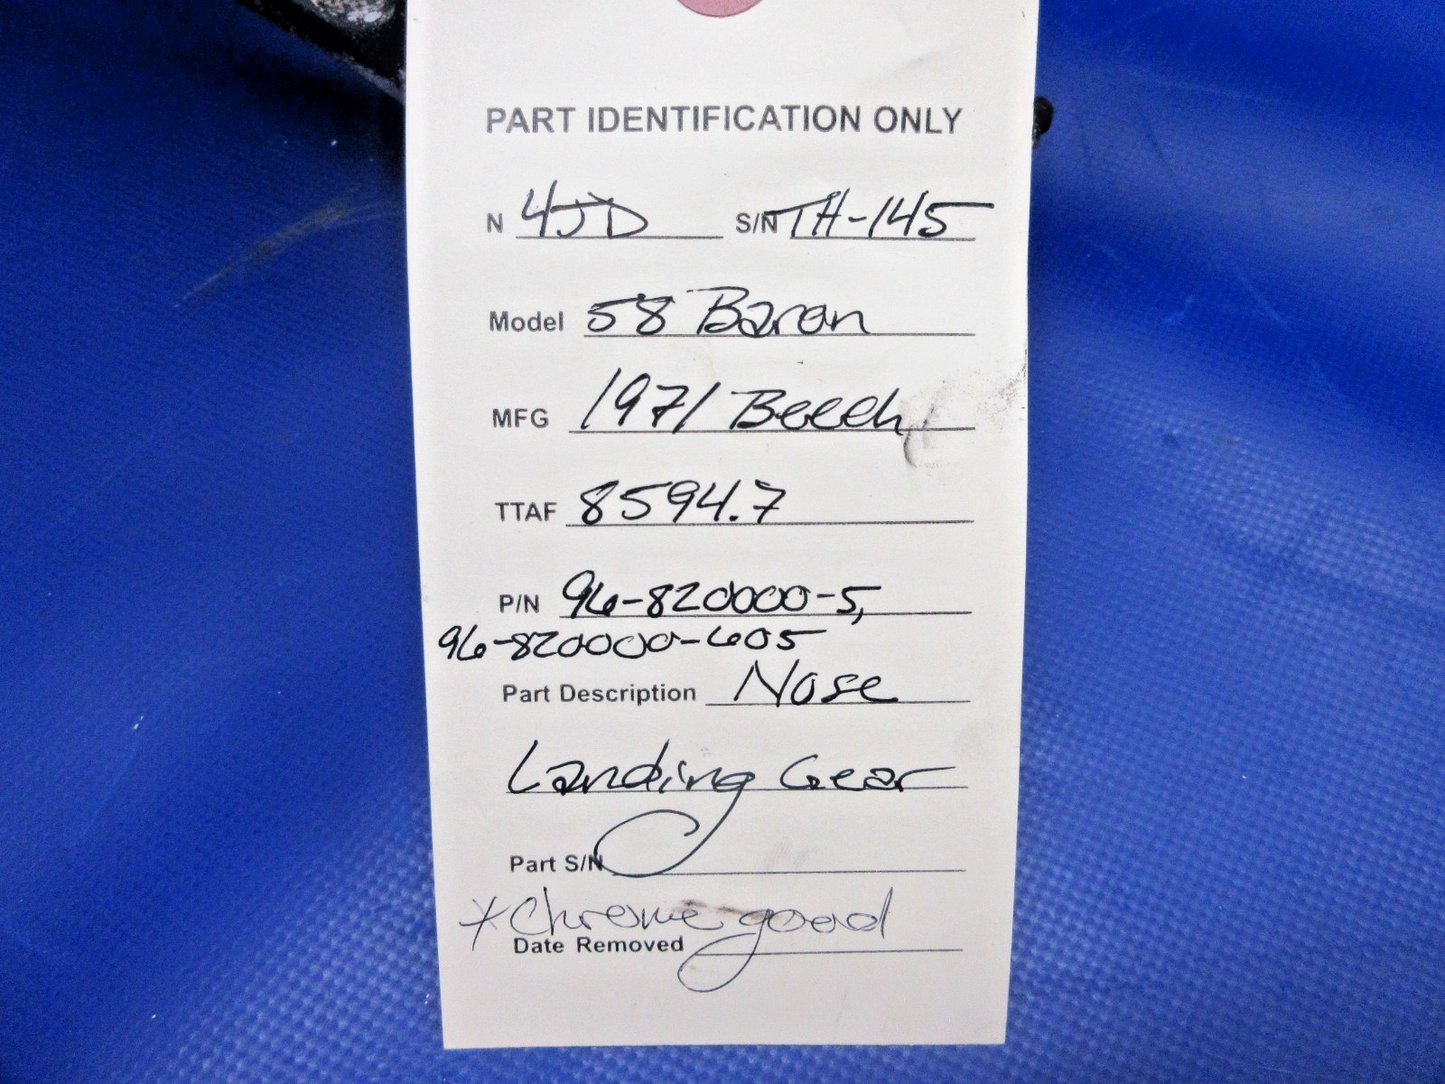 PART IDENTIFICATION ONLY
N 4JD S/N TH-145
Model 58 Baron
MFG 1971 Beech
TTAF 8594.7
P/N 96-820000-5,
96-820000-605
Part Description Nose
Landing Gear
Part S/N
*Chrome good
Date Removed